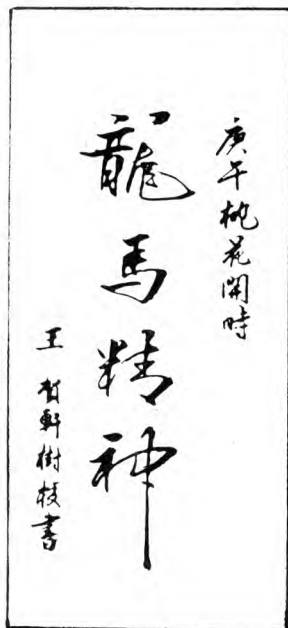 庚午桃花開時
龍馬精神
王賀軒樹枝書